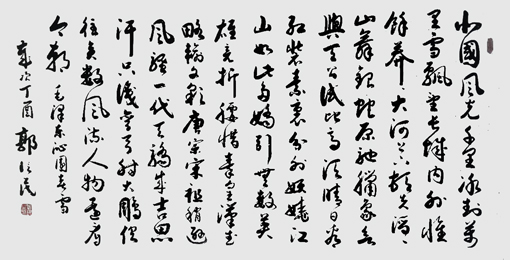 北國風光千里冰封萬
里雪飄望長城内外惟
餘莽〻大河上下頓失滔〻
山舞銀蛇原馳蠟象欲
與天公試比高須晴日看
紅裝素裹分外妖嬈江
山如此多嬌引無數英
雄競折腰惜秦皇漢武
略輸文彩唐宗宋祖稍遜
風騷一代天驕成吉思
汗只識彎弓射大鵰俱
往矣數風流人物還看
今朝 毛澤東沁園春雪
歲次丁酉 郭